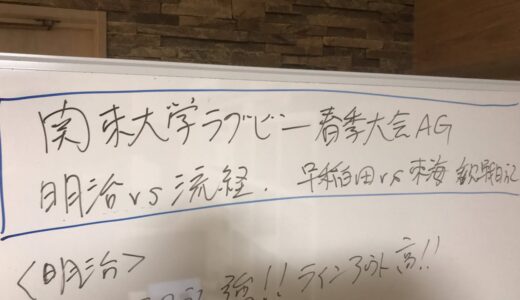 関東大学ラグビー春季大会AG
明治vs流経. 早稲田vs東海 観戦日記
<明治>
強!! ラインアウト高!!